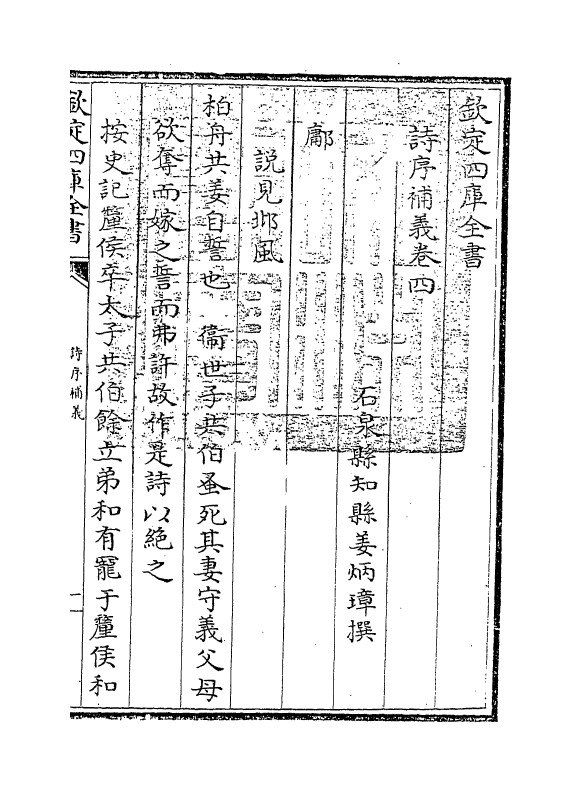 欽定四庫全書
詩序補義卷四
石泉縣知縣姜炳璋撰
鄘
說見邶風
柏舟共姜自誓也 衞世子共伯蚤死其妻守義父母
欲奪而嫁之誓而弗許故作是詩以絶之
按史記釐侯卒太子共伯餘立弟和有寵于釐侯和
欽定四庫全書
詩序補義
一